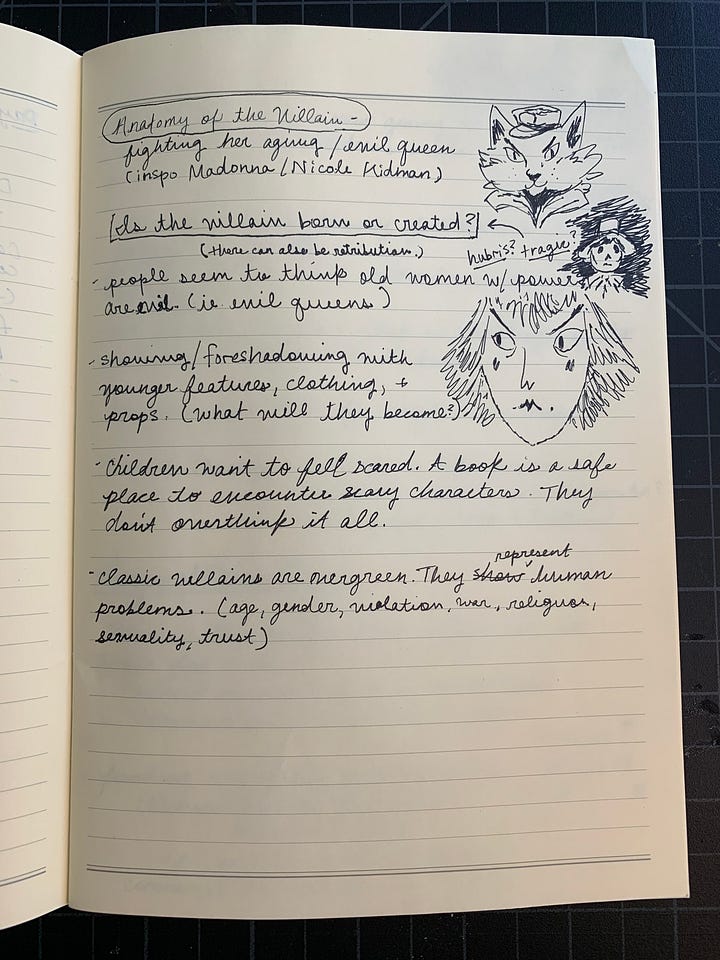 Anatomy of the Villain -
fighting her aging / evil queen
(inspo Madonna / Nicole Kidman)
Is the villain born or created?
(there can also be retribution.)
hubris? tragic?
- people seem to think old women w/ power
are evil. (ie evil queens)
- showing/foreshadowing with
younger features, clothing, +
props. (what will they become?)
- Children want to fell scared. A book is a safe
place to encounter scary characters. They
don't overthink it all.
represent
- Classic villains are evergreen. They show human
problems. (age, gender, violation, war, religion,
sexuality, trust)